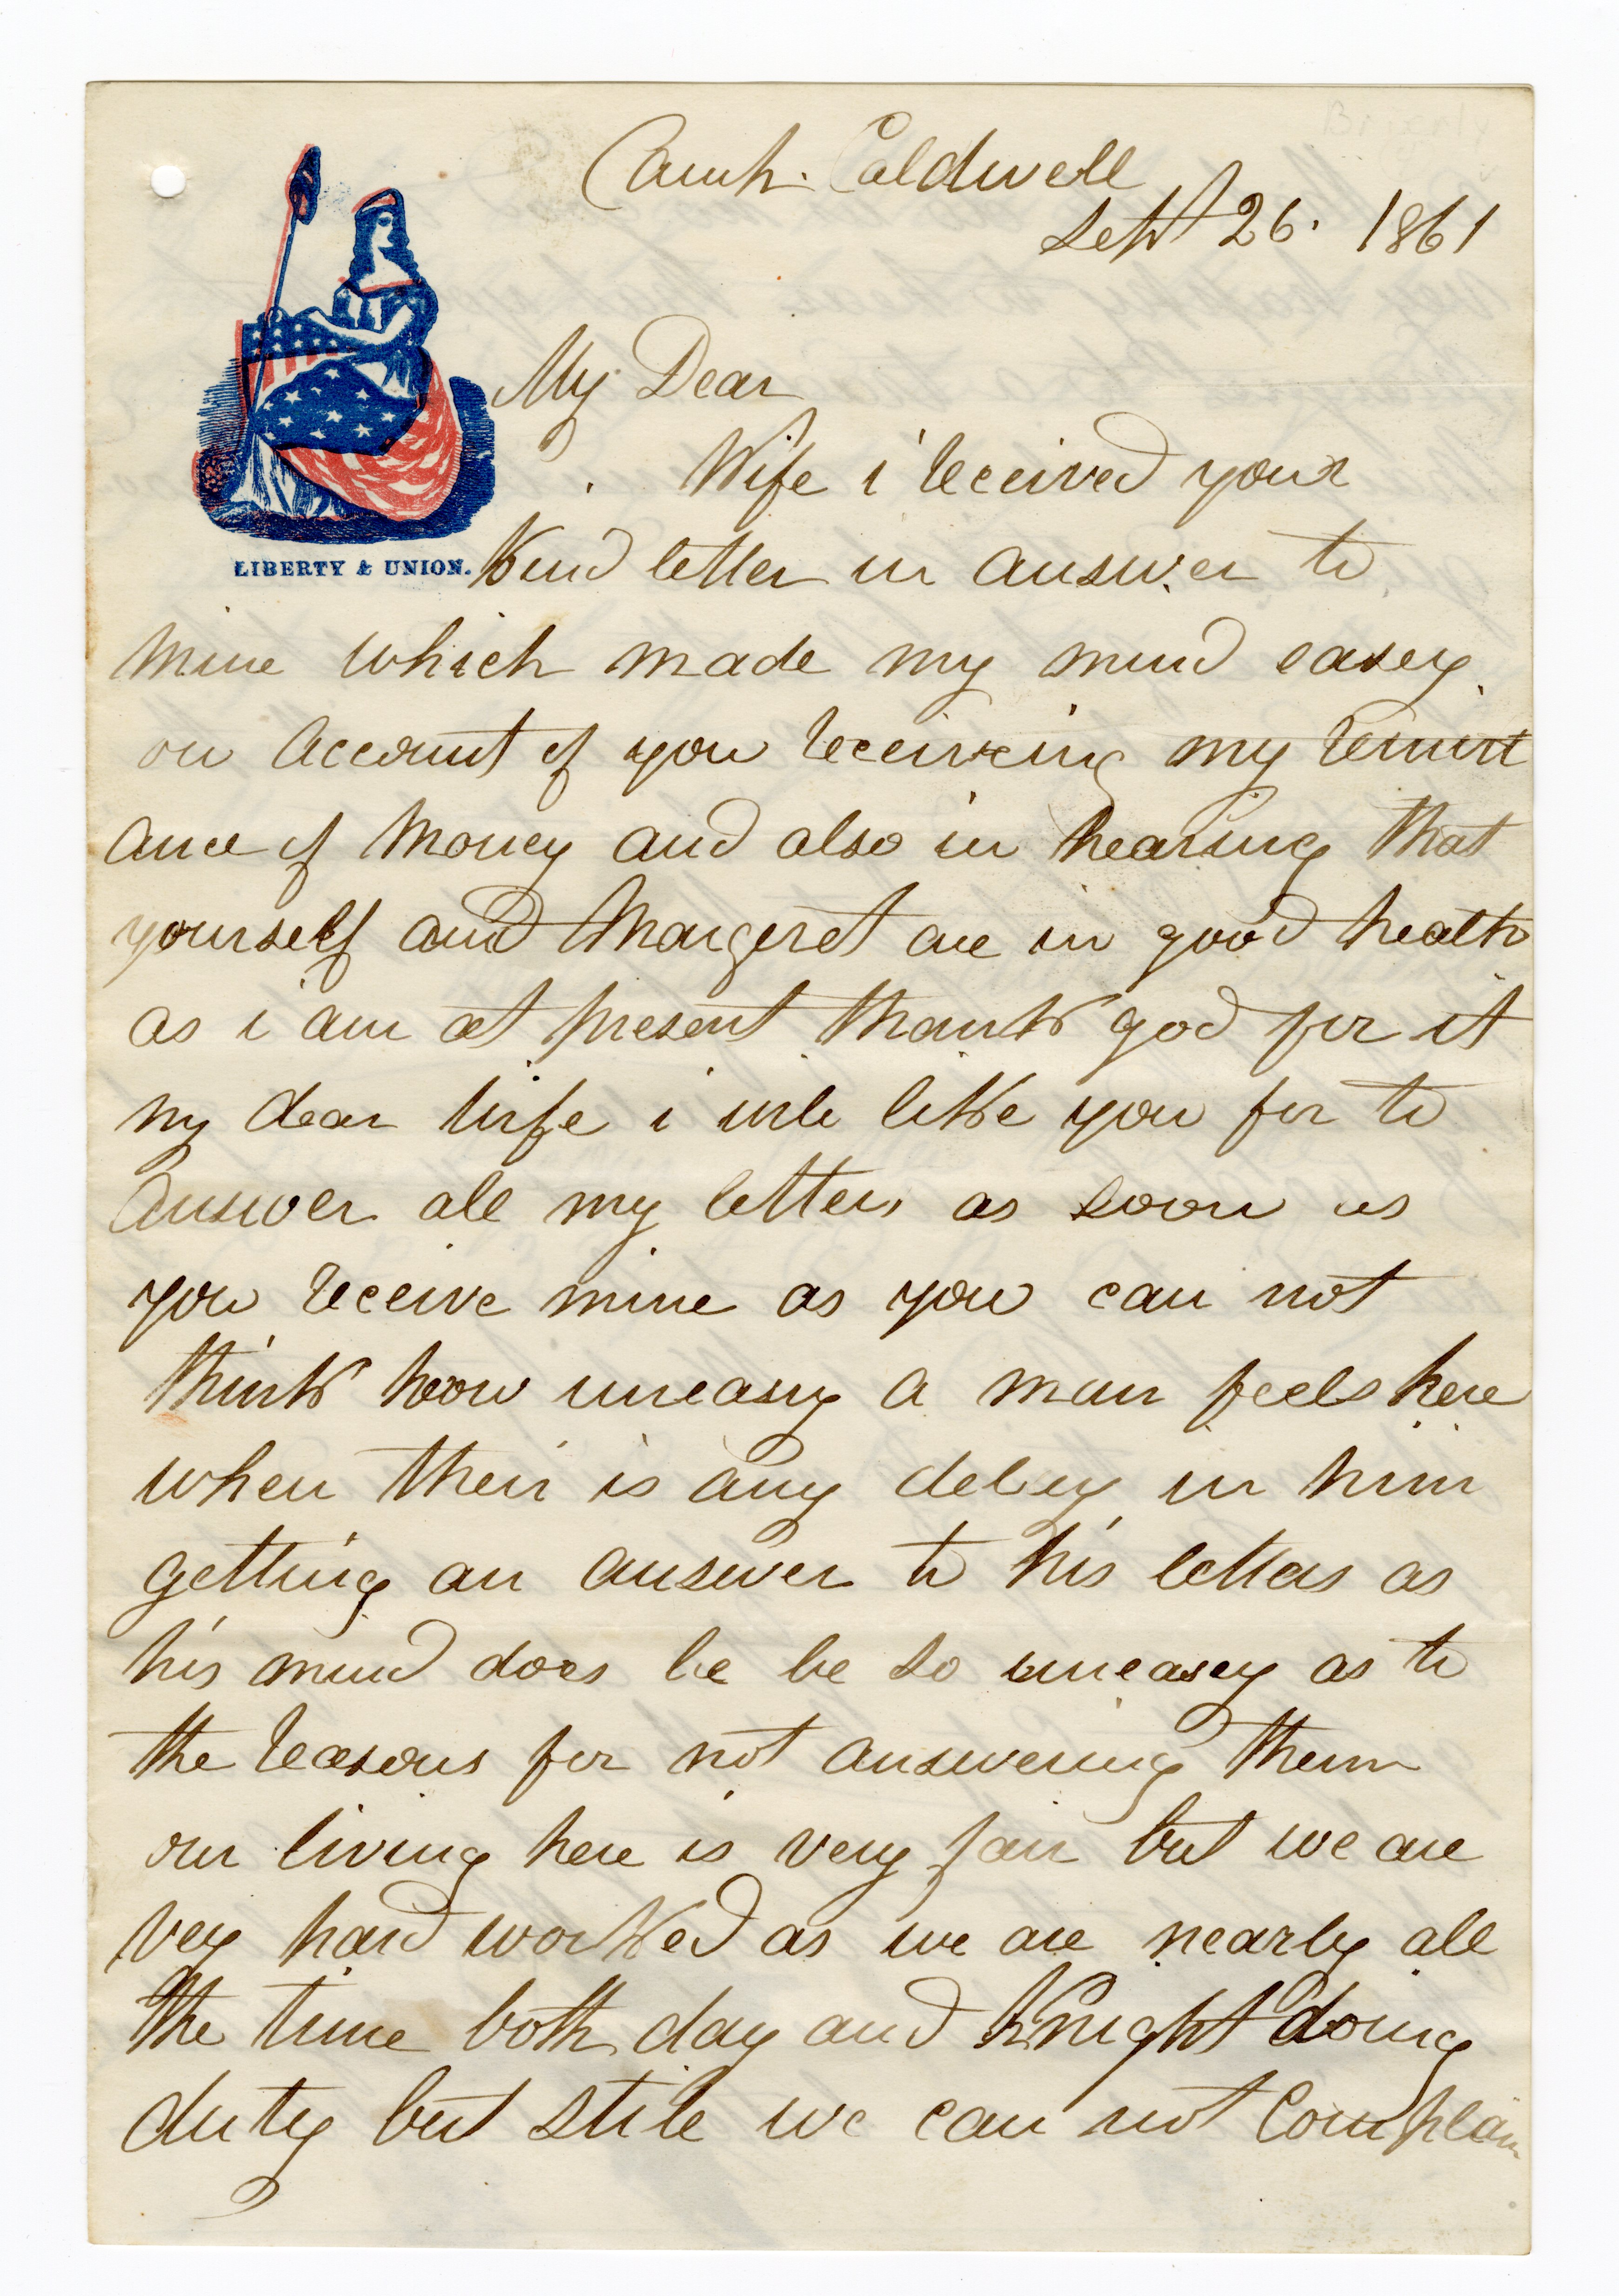 Camp. Caldwell
Sept 26. 1861
My Dear
Wife i received your
LIBERTY & UNION.
Kind letter in answer to
mine which made my mind easey
on account of you receiveing my remitt
ance of Money and also in hearing that
yourself and Margeret are in good health
as i am at present thank god for it
my dear wife i will like you for to
Answer all my letters as soon as
you receive mine as you can not
think hoow uneasy a man feels here
when their is any delay in him
getting an answer to his letters as
his mind does be be so uneasey as to
the reasons for not answering them
our living here is very fair but we are
very hard worked as we are nearly all
the time both day and Knight doing
duty but still we can not Complain